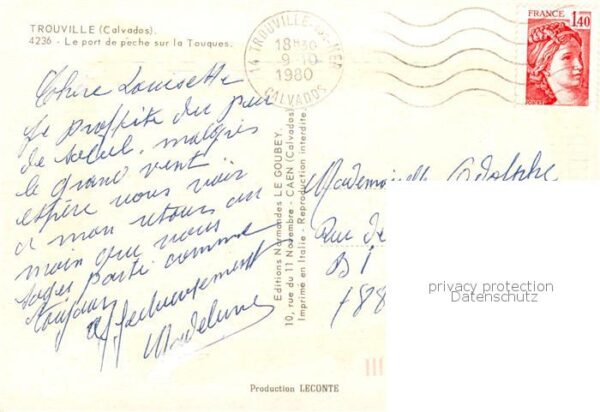 TROUVILLE (Calvados).
4236 - Le port de pêche sur la Touques.
14 TROUVILLE-SUR-MER
18H30
9-10
1980
CALVADOS
FRANCE
1,40
Chère Louisette
Je proffite du peu
de soleil, malgrés
le grand vent
espère vous voir
a mon retour au
main que vous
partie comme
toujour
affectueusement
Madeleine
Editions Normandes LE GOUBEY.
10, rue du 11 Novembre - CAEN (Calvados)
Imprimé en Italie - Reproduction interdite.
Mademoiselle Adolphe
Rue de
B 1
788
privacy protection
Datenschutz
Production LECONTE